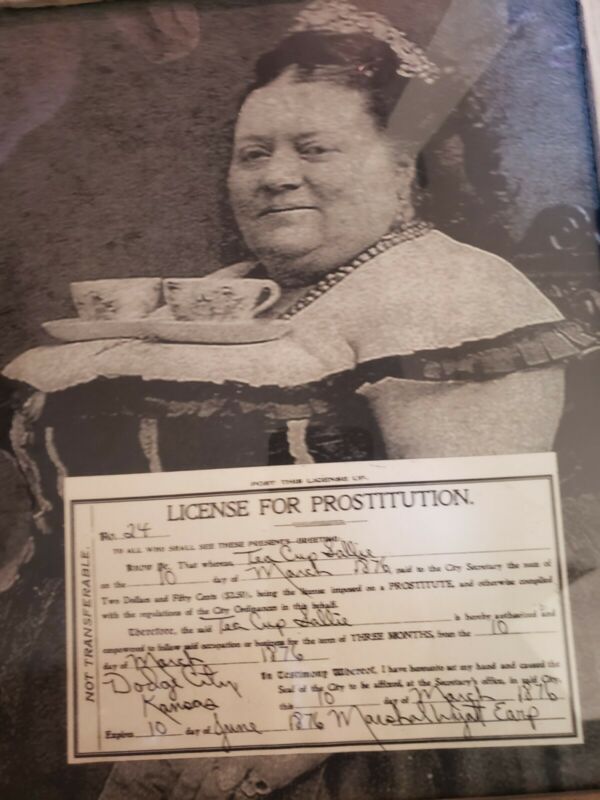 POST THIS LICENSE UP.
LICENSE FOR PROSTITUTION.
No. 24
TO ALL WHO SHALL SEE THESE PRESENTS—GREETING:
Know Ye, That whereas, Tea Cup Sallie
on the 10 day of March 1876 paid to the City Secretary the sum of
Two Dollars and Fifty Cents ($2.50), being the license imposed on a PROSTITUTE, and otherwise complied
with the regulations of the City Ordinances in this behalf.
Therefore, the said Tea Cup Sallie is hereby authorized and
empowered to follow said occupation or business for the term of THREE MONTHS, from the 10
day of March 1876
Dodge City
Kansas
In Testimony Whereof, I have hereunto set my hand and caused the
Seal of the City to be affixed, at the Secretary's office, in said City,
this 10 day of March 1876
Expires 10 day of June 1876 Marshal Wyatt Earp
NOT TRANSFERABLE.